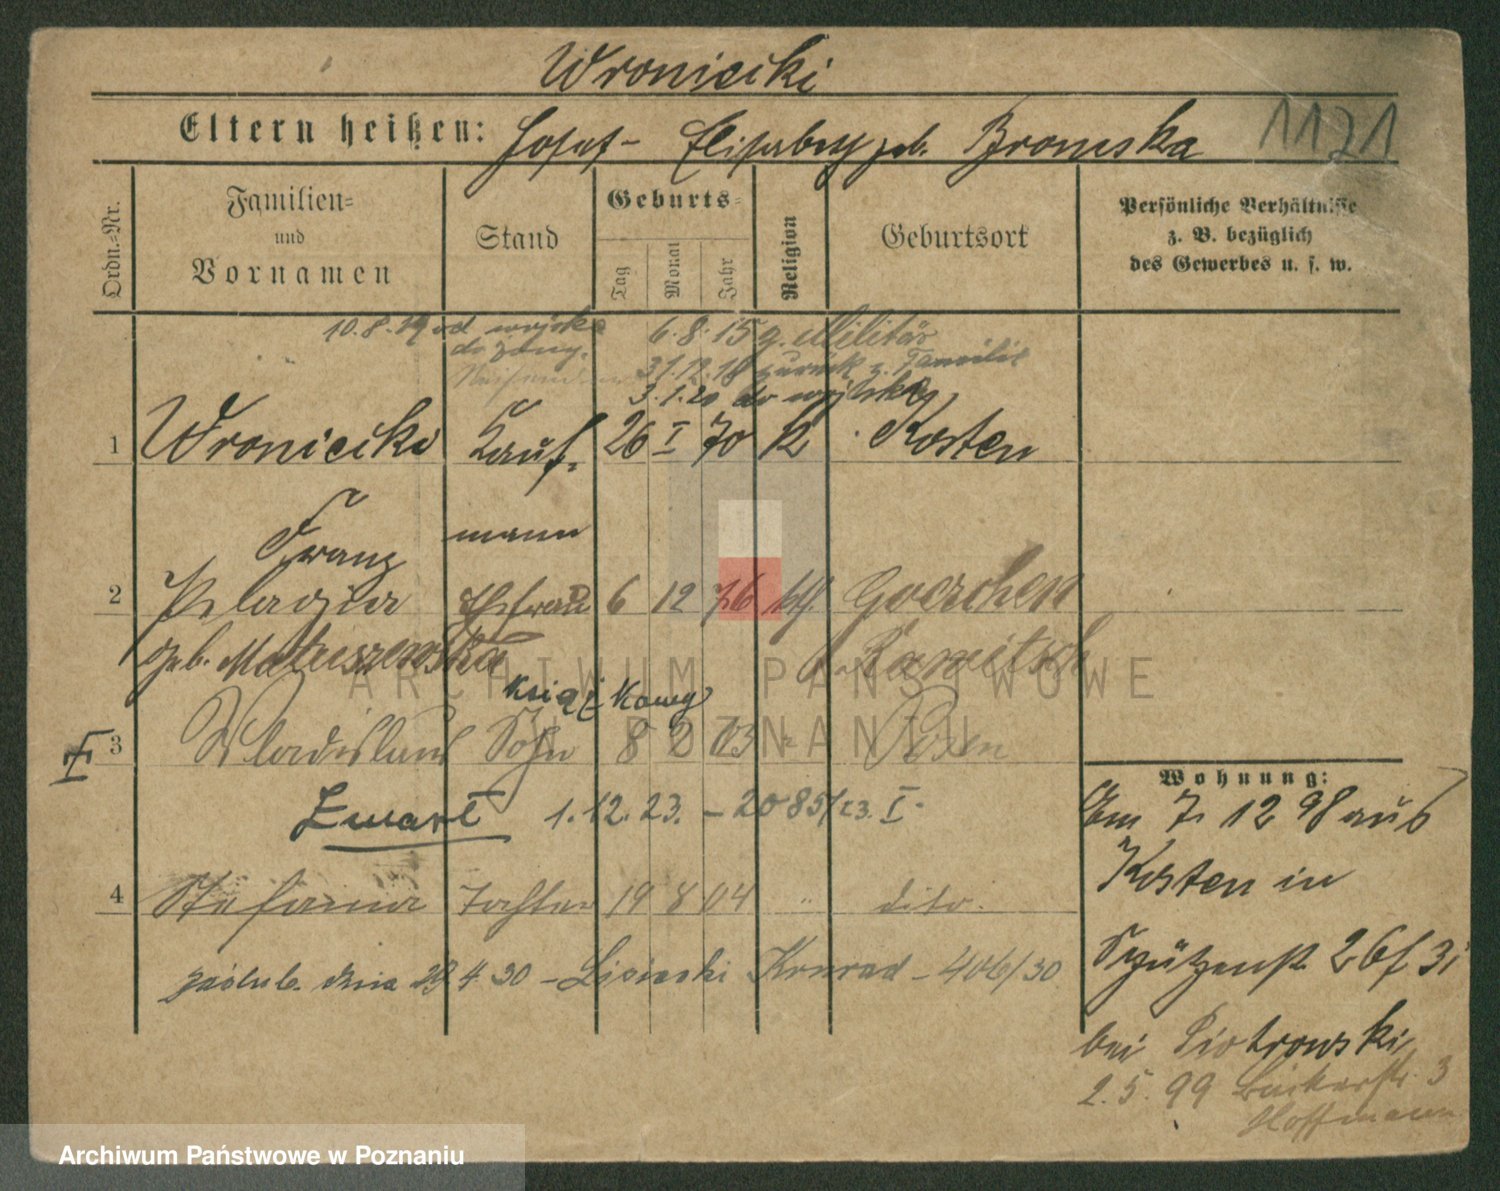 Wroniecki
Eltern heißen: Josef - Elisabeth geb. Bronieska
1171
Ordn.=Nr.
Familien=
und
Vornamen
Stand
Geburts=
Tag
Monat
Jahr
Religion
Geburtsort
Persönliche Verhältnisse
z. B. bezüglich
des Gewerbes u. s. w.
10.8.19 od wojska
6.8.15 z. Militär
31.12.18 zurück z. Familie
3.1.20 do wojska
1 Wroniecki Kauf= 26 I 70 k Kosten
Franz mann
2 Pelagia Ehefrau 6 12 76 kth. Goerchen
geb. Matuszewska Rawitsch
Książkowy
3 Wladislaus Sohn 8 2 03 " Posen
Zmarł 1.12.23. - 2085/23. I.
4 Stefania Tochter 19 8 04 " dito.
zaślub. dnia 29 4. 30 - Lisiecki Konrad - 406/30
Wohnung:
Am 7. 12 98 aus
Kosten in
Schützenst. 26
bei Piotrowski,
2.5.99 Bäckerstr. 3
Hoffmann
ARCHIWUM PAŃSTWOWE
W POZNANIU
Archiwum Państwowe w Poznaniu